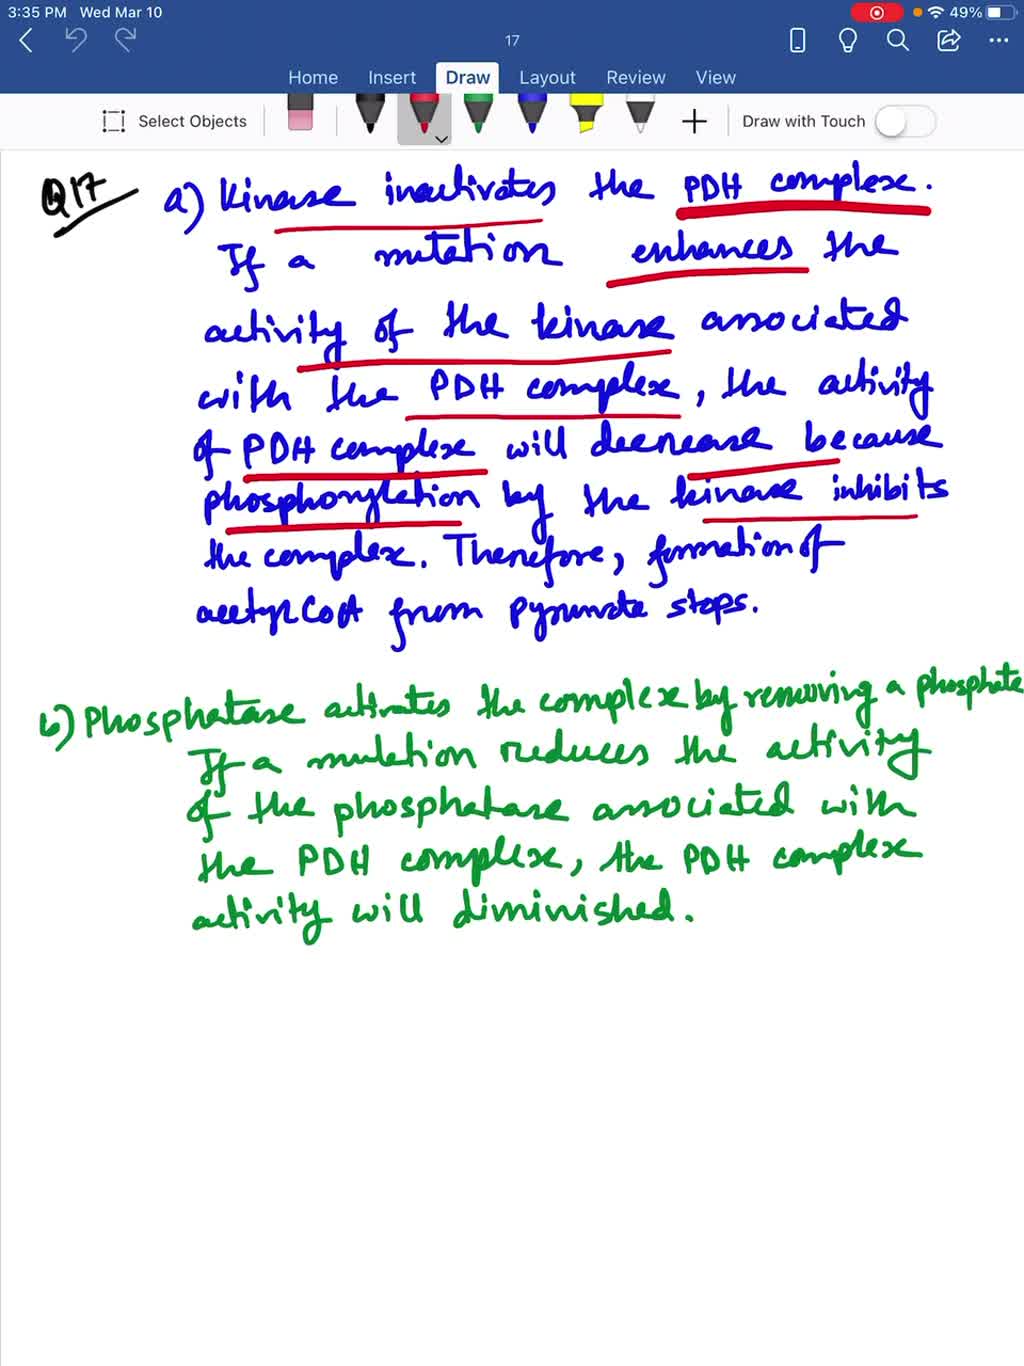 3:35 PM Wed Mar 10 49%
17
Home Insert Draw Layout Review View
Select Objects Draw with Touch
Q17 a) Kinase inactivates the PDH complex.
If a mutation enhances the
activity of the kinase associated
with the PDH complex, the activity
of PDH complex will decrease because
phosphorylation by the kinase inhibits
the complex. Therefore, formation of
acetyl CoA from pyruvate stops.
b) Phosphatase activates the complex by removing a phosphate
If a mutation reduces the activity
of the phosphatase associated with
the PDH complex, the PDH complex
activity will diminished.